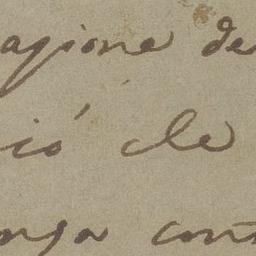 agione de
ió che
enga con